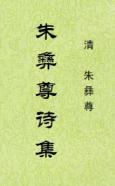 清 朱彝尊
朱彝尊诗集